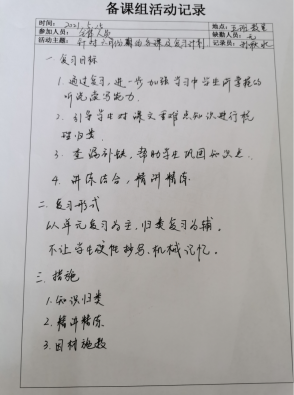 备课组活动记录
时间: 2021.5.15 地点: 五班教室
参加人员: 全体人员 缺勤人员: 无
活动主题: 针对六月份期的备课及复习计划 记录员:
一 复习目标
1. 通过复习，进一步加强学习中学生所掌握的
听说读写能力.
2. 引导学生对课文重难点知识进行梳
理归类.
3. 查漏补缺, 帮助学生巩固知识点.
4. 讲练结合, 精讲精练
二. 复习形式
以单元复习为主, 归类复习为辅.
不让学生硬性抄写, 机械记忆.
三. 措施
1. 知识归类
2. 精讲精练
3. 因材施教